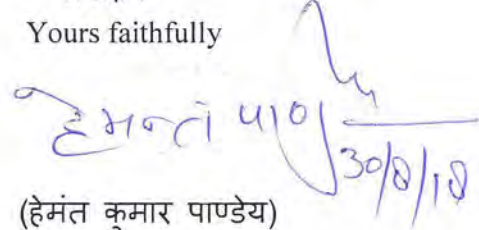 Yours faithfully
हेमन्त पाण्
30/8/18
(हेमंत कुमार पाण्डेय)